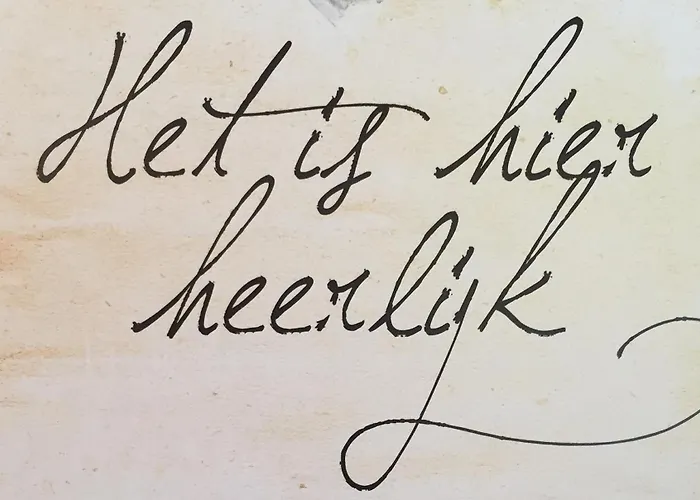 Het is hier
heerlijk